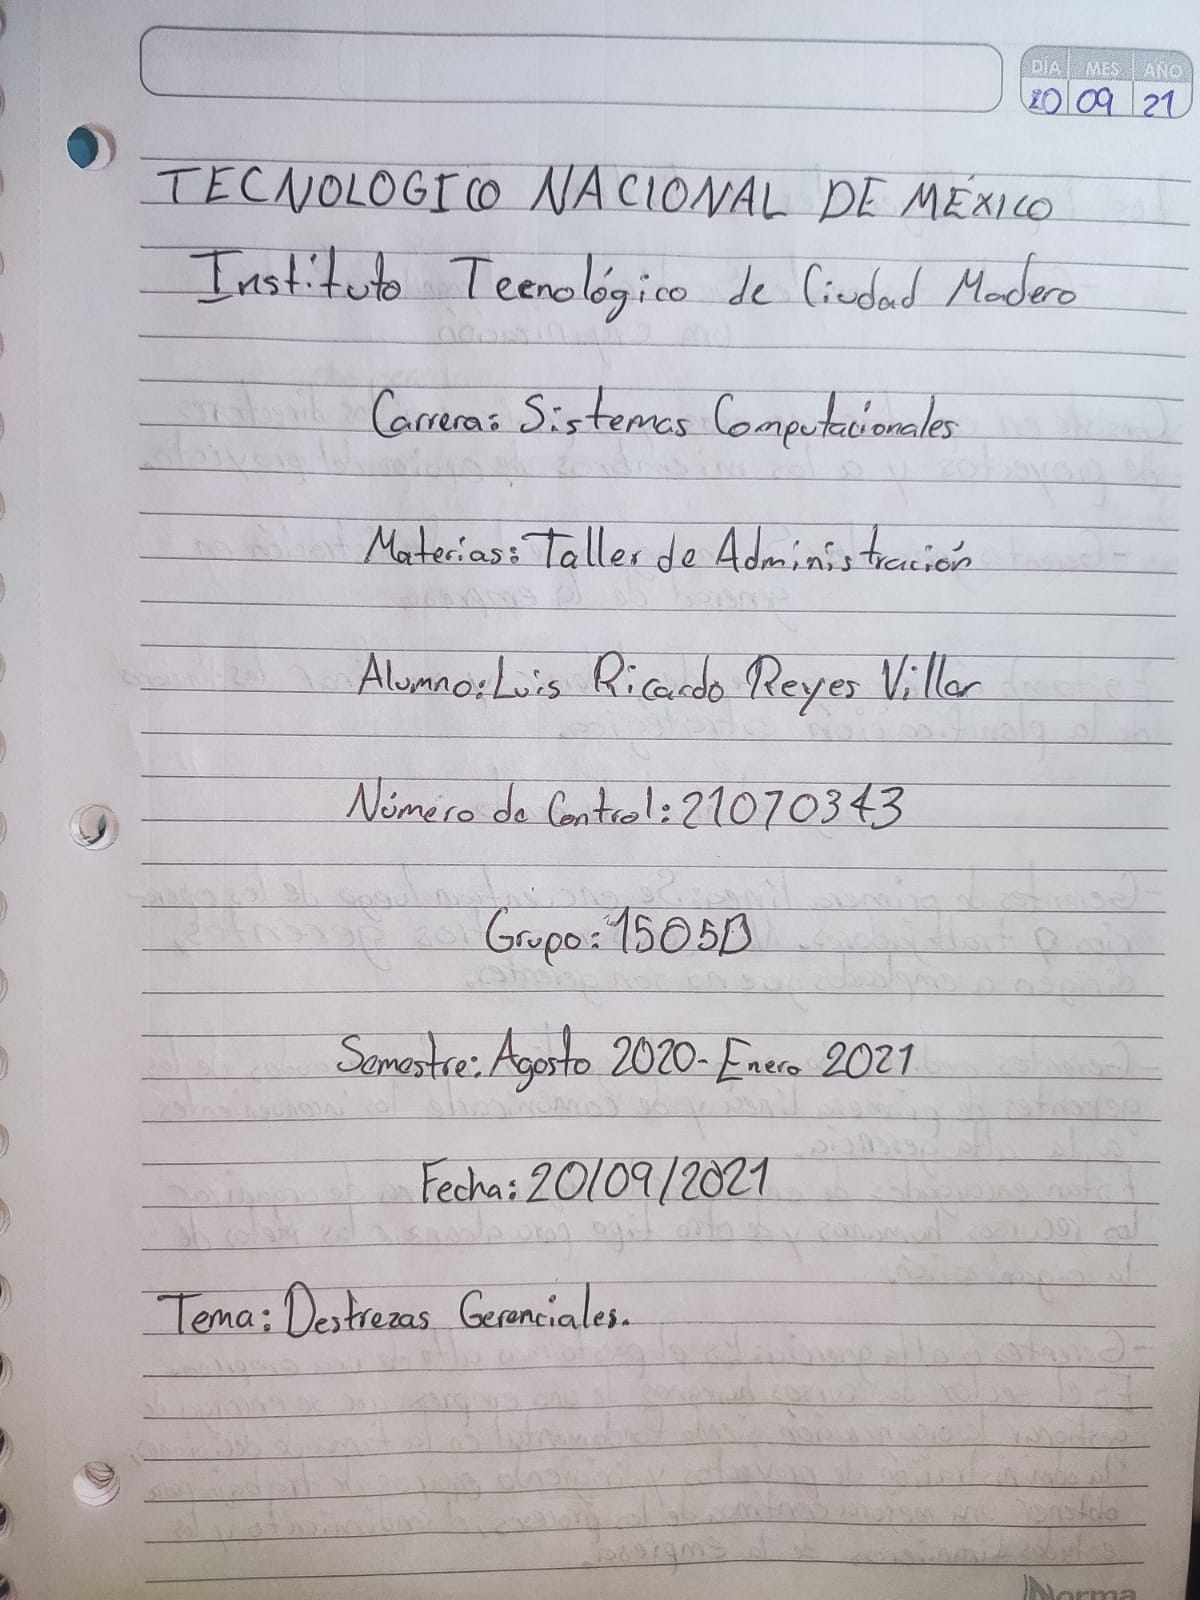 DÍA MES AÑO
20 09 21
TECNOLOGICO NACIONAL DE MÉXICO
Instituto Tecnológico de Ciudad Madero
Carrera: Sistemas Computacionales
Materias: Taller de Administración
Alumno: Luis Ricardo Reyes Villar
Número de Control: 21070343
Grupo: 1505B
Semestre: Agosto 2020-Enero 2021
Fecha: 20/09/2021
Tema: Destrezas Gerenciales.
Norma